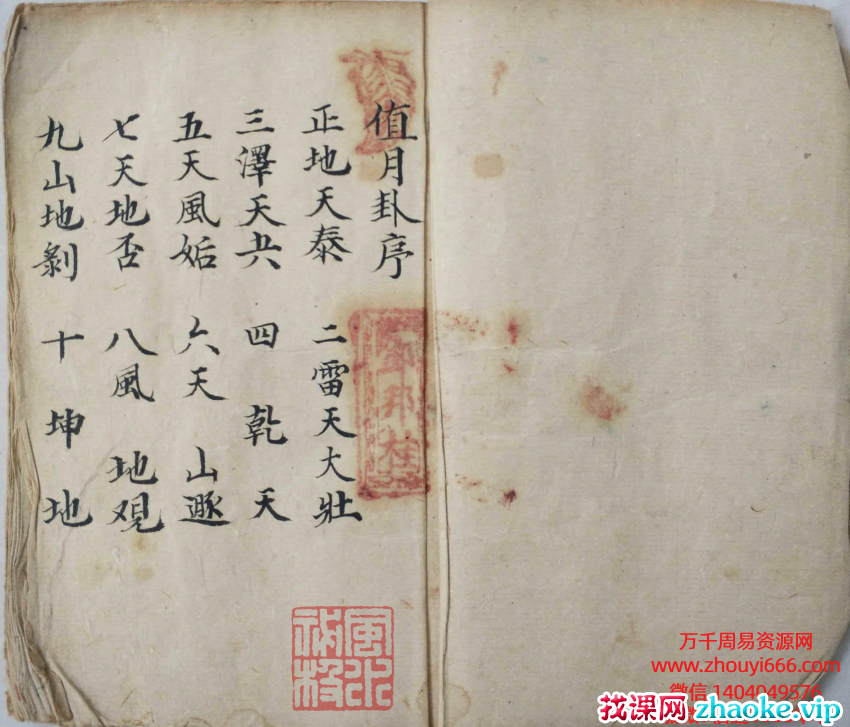 值月卦序
正地天泰 二雷天大壯
三澤天夬 四乾天
五天風姤 六天山遯
七天地否 八風地观
九山地剝 十坤地
風水
秘授
万千周易资源网
www.zhouyi666.com
微信 1404049576
找课网zhaoke.vip